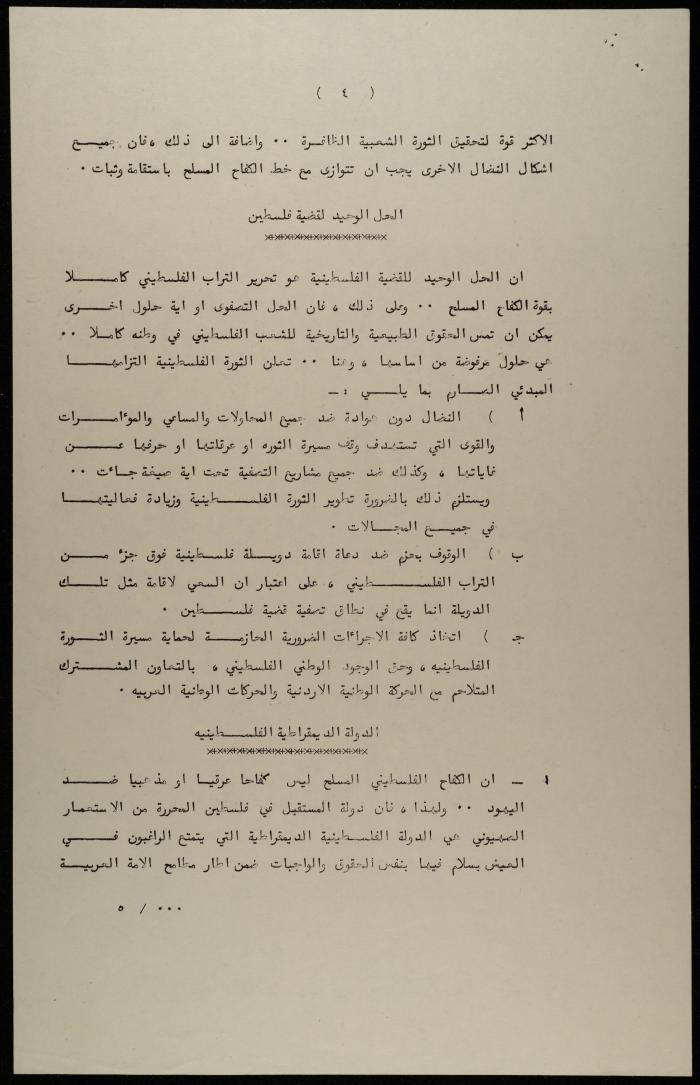 ( ٤ )
الاكثر قوة لتحقيق الثورة الشعبية الظافرة ٠٠ واضافة الى ذلك ، فان جميع
اشكال النضال الاخرى يجب ان تتوازى مع خط الكفاح المسلح باستقامة وثبات ٠
الحل الوحيد لقضية فلسطين
×××××××××××××××××××××
ان الحل الوحيد للقضية الفلسطينية هو تحرير التراب الفلسطيني كامــلا
بقوة الكفاح المسلح ٠٠ وعلى ذلك ، فان الحل التصفوى او اية حلول اخــرى
يمكن ان تمس الحقوق الطبيعية والتاريخية للشعب الفلسطيني في وطنه كاملا ٠٠
هي حلول مرفوضة من اساسها ، وهنا ٠٠ تعلن الثورة الفلسطينية التزامهــا
المبدئي الصــارم بما يلــي : ــ
أ ) النضال دون هوادة ضد جميع المحاولات والمساعي والموءامــرات
والقوى التي تستهدف وقف مسيرة الثوره او عرقلتها او حرفها عــن
غاياتها ، وكذلك ضد جميع مشاريع التصفية تحت اية صيغة جــاءت ٠٠
ويستلزم ذلك بالضرورة تطوير الثورة الفلســطينية وزيادة فعاليتهــا
في جميــع المجــالات ٠
ب ) الوقوف بحزم ضد دعاة اقامة دويــلة فلسطينية فوق جزء مــن
التراب الفلســـطيني ، على اعتبار ان السعي لاقامة مثل تلــك
الدويلة انما يقع في نطاق تصفية قضية فلســطين ٠
جـ ) اتخاذ كافة الاجراءات الضرورية الحازمــة لحماية مسيرة الثــورة
الفلسطينيه ، وحق الوجود الوطني الفلسطيني ، بالتعاون المشــترك
المتلاحم مع الحركة الوطنية الاردنية والحركات الوطنية العربيه ٠
الدولة الديمقراطية الفلســطينيه
×××××××××××××××××××××××××××
١ ــ ان الكفاح الفلسطيني المسلح ليس كفاحا عرقيا او مذهبيا ضــد
اليهود ٠٠ ولهذا ، فان دولة المستقبل في فلسطين المحررة من الاستعمار
الصهيوني هي الدولة الفلســطينية الديمقراطية التي يتمتع الراغبون فــي
العيش بسلام فيها بنفس الحقوق والواجبات ضمن اطار مطامح الامة العربيــة
٠٠٠ / ٥